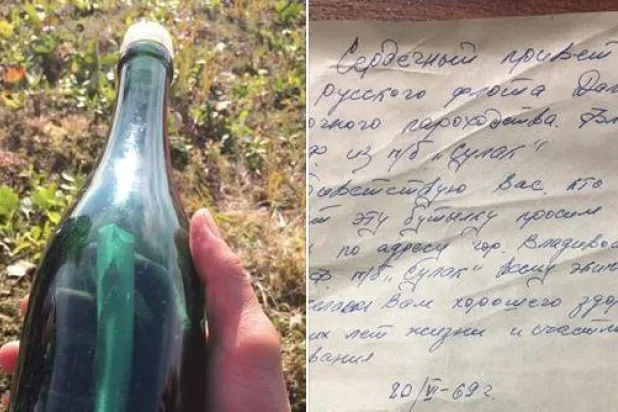 Сердечный привет
русского флота Дал
очного пароходства. Вл
из п/б „Сулак"
ветствую Вас, кто
т эту бутылку просим
по адресу гор. Владивос
п/б „Сулак" всему экип
Вам хорошего здор
их лет жизни и счастли
вания
20/VI-69 г.